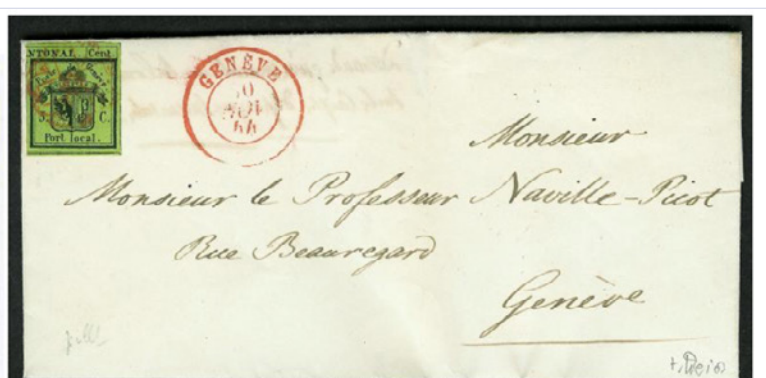 NTONAL Cent
Port local.
5 C.
GENÈVE
NOV
44
Monsieur
Monsieur le Professeur Naville-Picot
Rue Beauregard
Genève